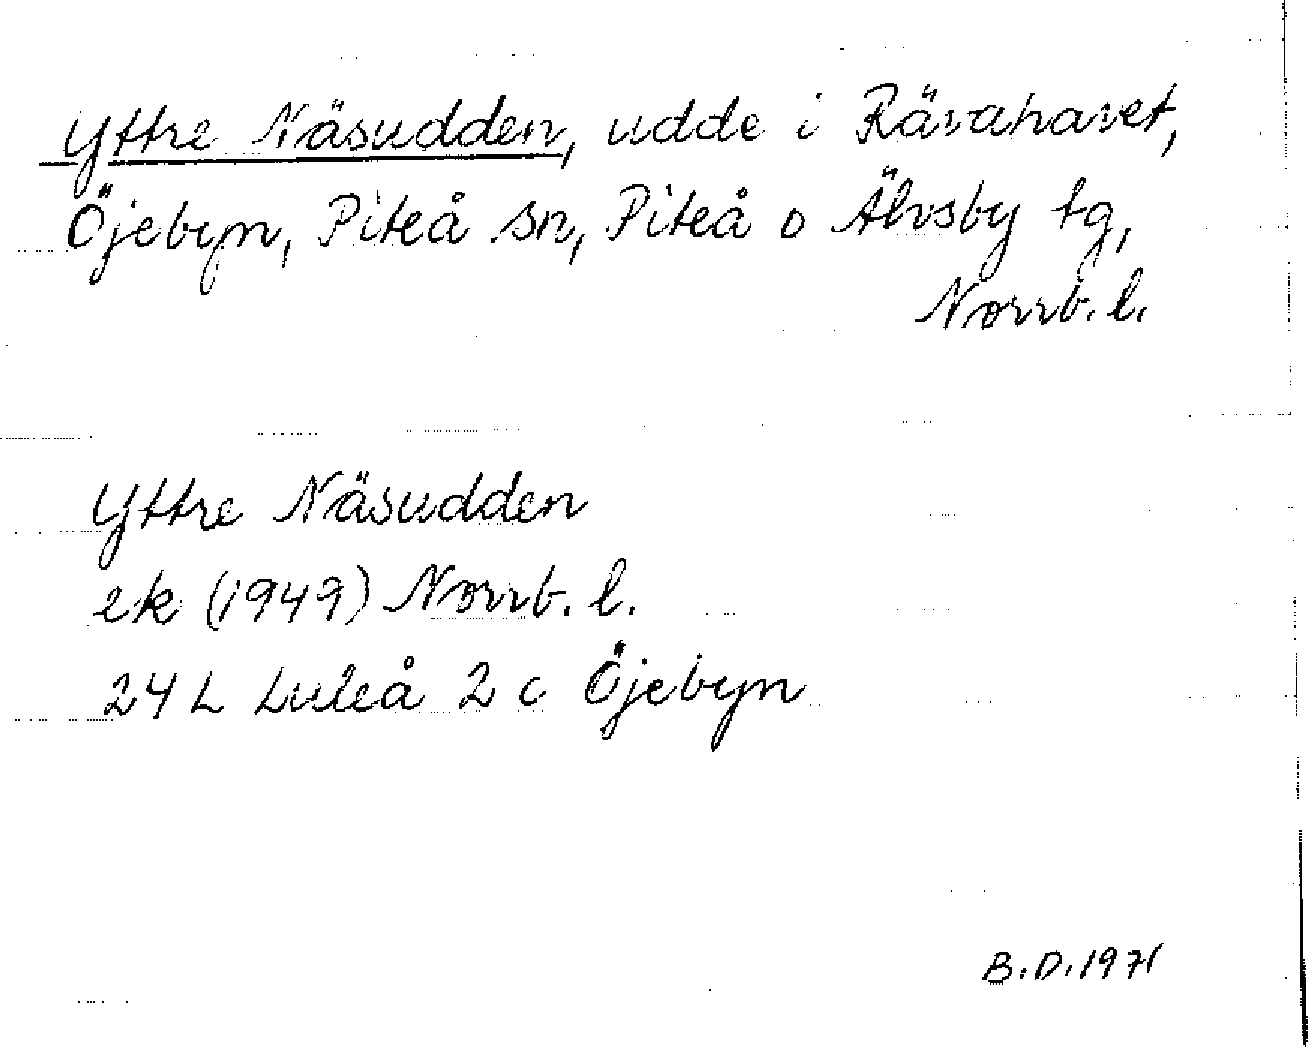 Yttre Näsudden, udde i Rävahavet,
Öjebyn, Piteå sn, Piteå o Älvsby tg,
Norrb. l.
Yttre Näsudden
ek (1949) Norrb. l.
24 L Luleå 2 c Öjebyn
B.D. 1971